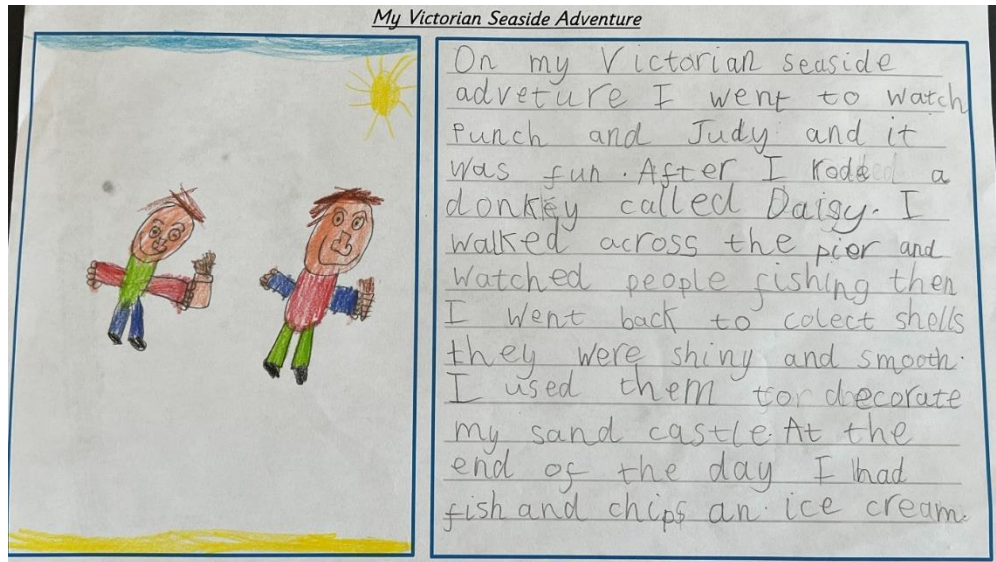 My Victorian Seaside Adventure
On my Victorian seaside
adveture I went to watch
Punch and Judy and it
was fun. After I rode a
donkey called Daisy. I
walked across the pier and
watched people fishing then
I went back to colect shells
they were shiny and smooth.
I used them to decorate
my sand castle. At the
end of the day I had
fish and chips an ice cream.